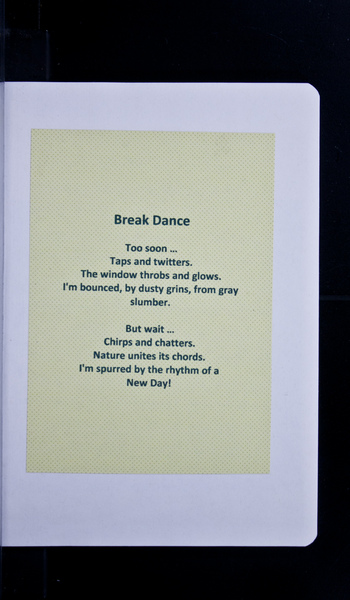 Break Dance
Too soon ...
Taps and twitters.
The window throbs and glows.
I'm bounced, by dusty grins, from gray
slumber.
But wait ...
Chirps and chatters.
Nature unites its chords.
I'm spurred by the rhythm of a
New Day!